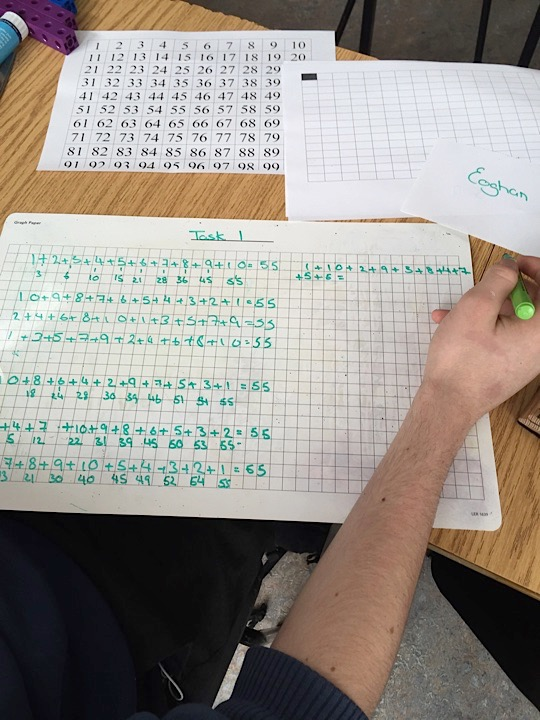 1 2 3 4 5 6 7 8 9 10
11 12 13 14 15 16 17 18 19 20
21 22 23 24 25 26 27 28 29
31 32 33 34 35 36 37 38 39
41 42 43 44 45 46 47 48 49
51 52 53 54 55 56 57 58 59
61 62 63 64 65 66 67 68 69
71 72 73 74 75 76 77 78 79
81 82 83 84 85 86 87 88 89
91 92 93 94 95 96 97 98 99
Eoghan
Graph Paper
Task 1
1+2+3+4+5+6+7+8+9+10=55
3 6 10 15 21 28 36 45 55
10+9+8+7+6+5+4+3+2+1=55
2+4+6+8+10+1+3+5+7+9=55
1+3+5+7+9+2+4+6+8+10=55
0+8+6+4+2+9+7+5+3+1=55
18 24 28 30 39 46 51 54 55
+4+7+10+9+8+6+5+3+2=55
5 12 22 31 39 45 50 53 55
7+8+9+10+5+4+3+2+1=55
3 21 30 40 45 49 52 54 55
1+10+2+9+3+8+4+7
+5+6=